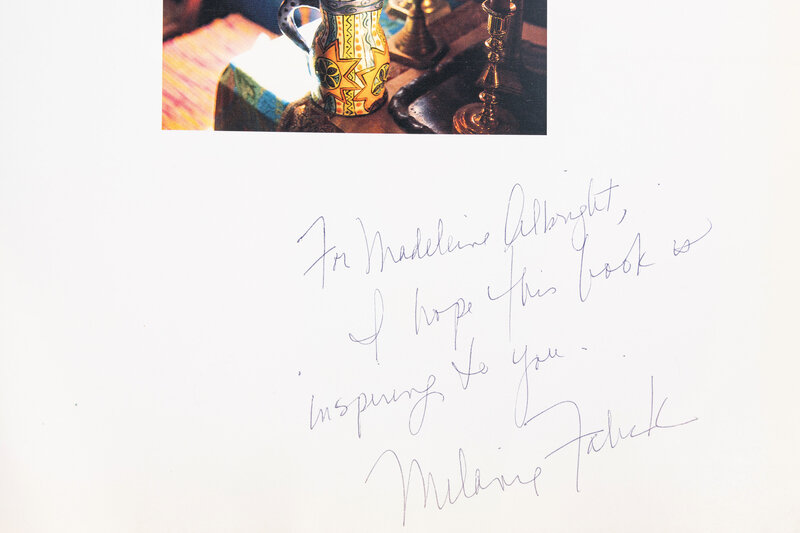 For Madeleine Albright,
I hope this book is
inspiring to you.
Melanie Falick